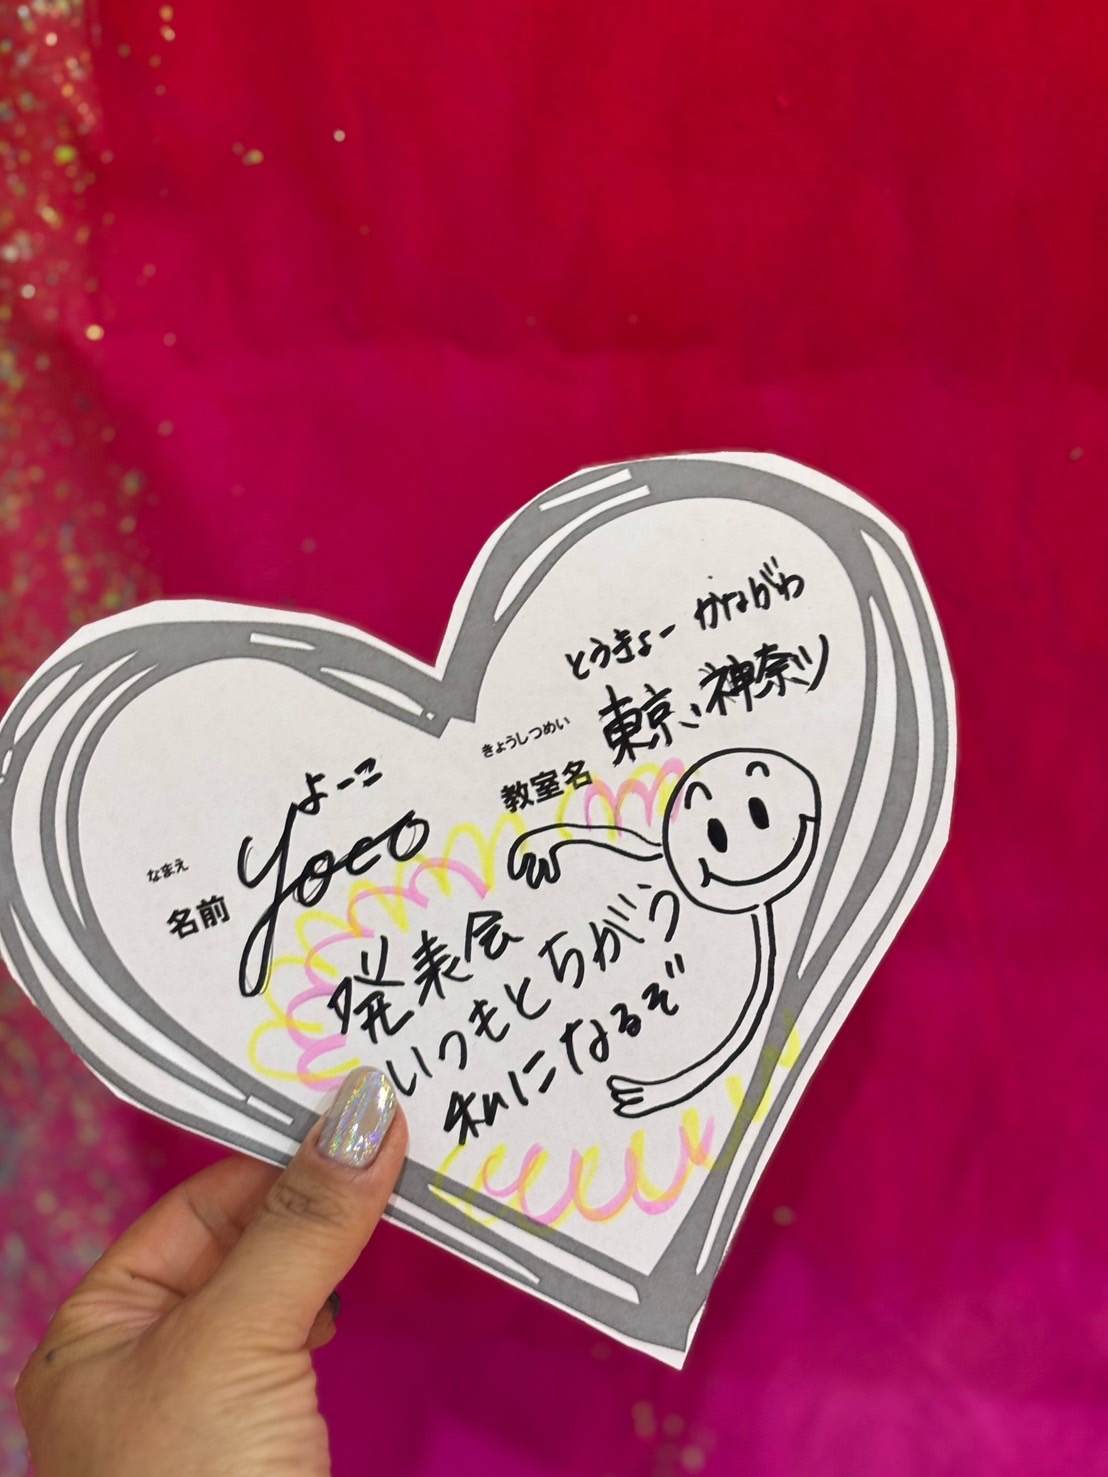 なまえ
名前
よーこ
yoco
きょうしつめい
教室名
とうきょー かながわ
東京、神奈川
発表会
いつもとちがう
私になるぞ